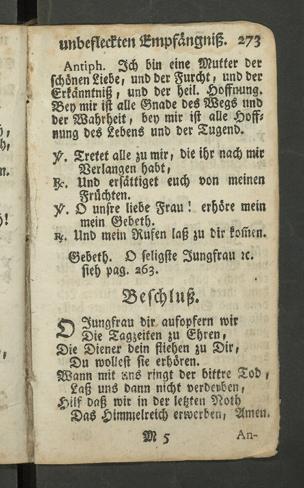 unbefleckten Empfängniß. 273
Antiph. Ich bin eine Mutter der
schönen Liebe, und der Furcht, und der
Erkänntniß, und der heil. Hoffnung.
Bey mir ist alle Gnade des Wegs und
der Wahrheit, bey mir ist alle Hoff-
nung des Lebens und der Tugend.
℣. Tretet alle zu mir, die ihr nach mir
Verlangen habt,
℟. Und ersättiget euch von meinen
Früchten.
℣. O unsre liebe Frau! erhöre mein
mein Gebeth.
℟. Und mein Rufen laß zu dir kom̄en.
Gebeth. O seligste Jungfrau ꝛc.
sieh pag. 263.
Beschluß.
O Jungfrau dir aufopfern wir
Die Tagzeiten zu Ehren,
Die Diener dein fliehen zu Dir,
Du wollest sie erhören.
Wann mit uns ringt der bittre Tod,
Laß uns dann nicht verderben,
Hilf daß wir in der letzten Noth
Das Himmelreich erwerben, Amen.
M 5 An-